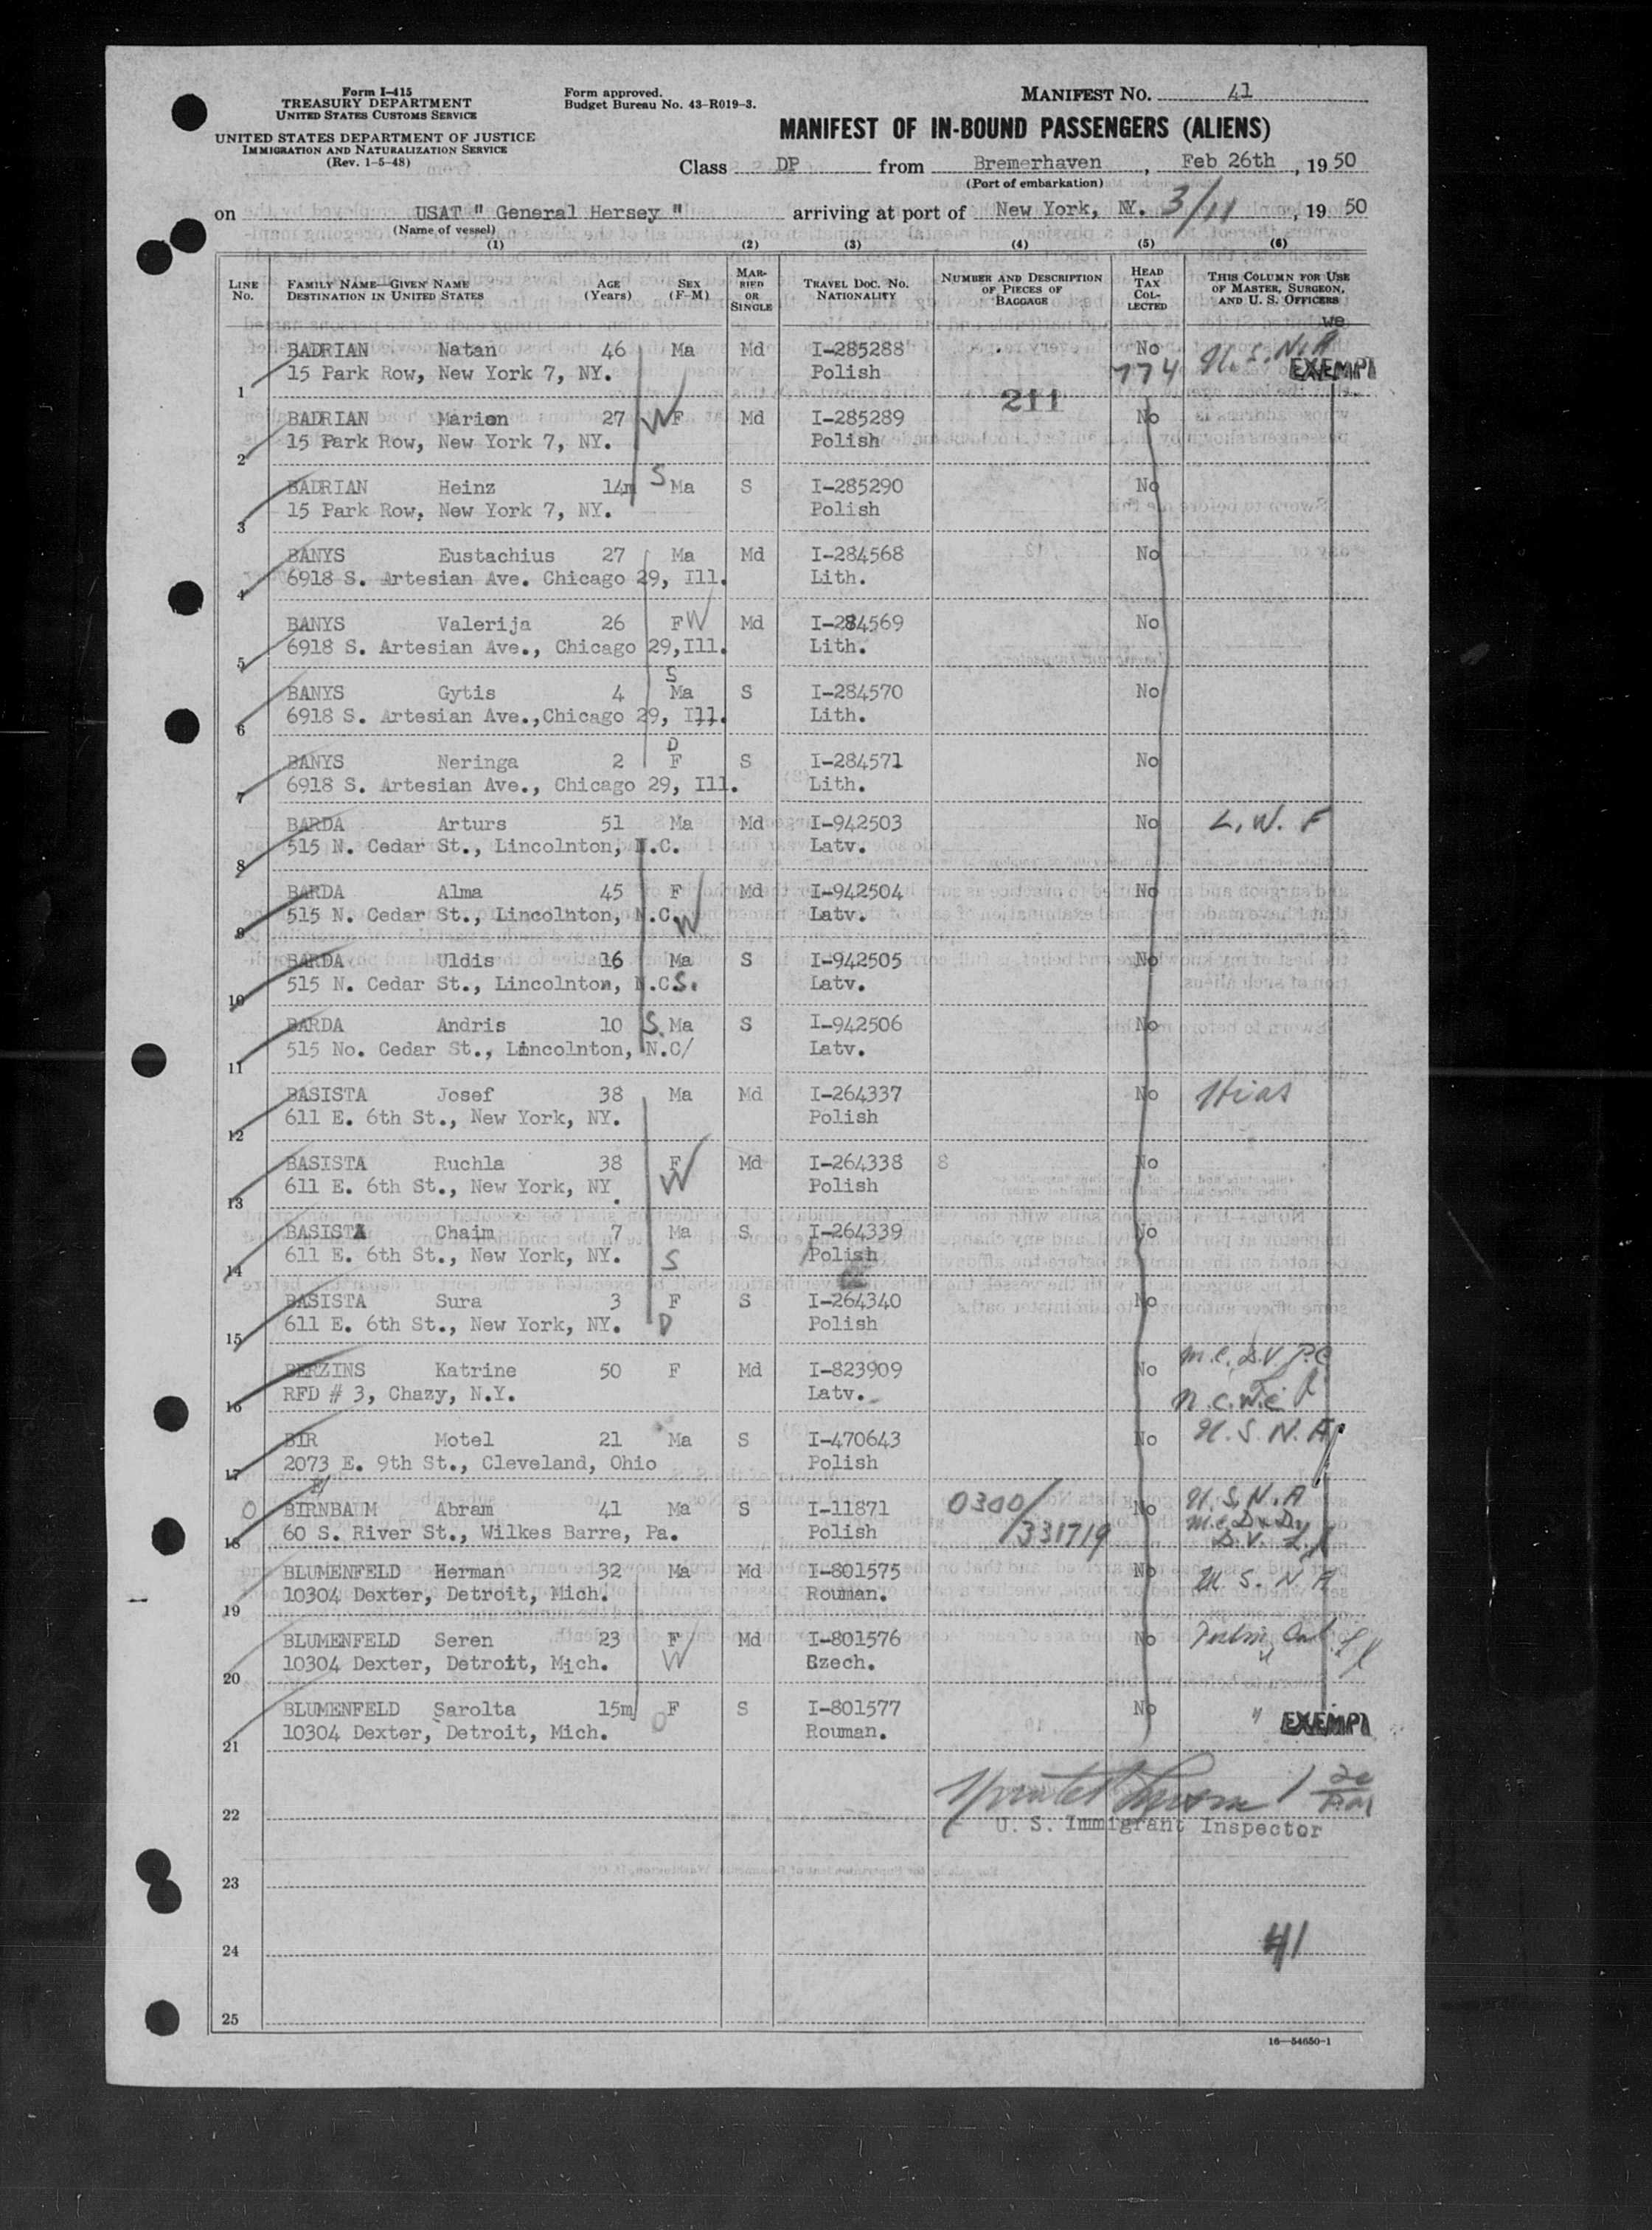 Form I-415
TREASURY DEPARTMENT
UNITED STATES CUSTOMS SERVICE
UNITED STATES DEPARTMENT OF JUSTICE
IMMIGRATION AND NATURALIZATION SERVICE
(Rev. 1-5-48)
Form approved.
Budget Bureau No. 43-R019-3.
MANIFEST NO. 41
MANIFEST OF IN-BOUND PASSENGERS (ALIENS)
Class DP from Bremerhaven, Feb 26th, 1950
(Port of embarkation)
on USAT " General Hersey " arriving at port of New York, NY. 3/11, 1950
(Name of vessel)
(1) (2) (3) (4) (5) (6)
LINE No. FAMILY NAME—GIVEN NAME DESTINATION IN UNITED STATES AGE (Years) SEX (F-M) MARRIED OR SINGLE TRAVEL DOC. NO. NATIONALITY NUMBER AND DESCRIPTION OF PIECES OF BAGGAGE HEAD TAX COLLECTED THIS COLUMN FOR USE OF MASTER, SURGEON, AND U. S. OFFICERS
we
BADRIAN Natan 46 Ma Md I-285288 No U.S.N.A
1 15 Park Row, New York 7, NY. Polish 774 EXEMPT
211
BADRIAN Marion 27 W F Md I-285289 No
2 15 Park Row, New York 7, NY. Polish
BADRIAN Heinz 14m S Ma S I-285290 No
3 15 Park Row, New York 7, NY. Polish
BANYS Eustachius 27 Ma Md I-284568 No
4 6918 S. Artesian Ave. Chicago 29, Ill. Lith.
BANYS Valerija 26 F W Md I-284569 No
5 6918 S. Artesian Ave., Chicago 29,Ill. Lith.
S
BANYS Gytis 4 Ma S I-284570 No
6 6918 S. Artesian Ave.,Chicago 29, Ill. Lith.
D
BANYS Neringa 2 F S I-284571 No
7 6918 S. Artesian Ave., Chicago 29, Ill. Lith.
BARDA Arturs 51 Ma Md I-942503 No L.W.F
8 515 N. Cedar St., Lincolnton, N.C. Latv.
BARDA Alma 45 F Md I-942504 No
9 515 N. Cedar St., Lincolnton, N.C. W Latv.
BARDA Uldis 16 Ma S I-942505 No
10 515 N. Cedar St., Lincolnton, N.C. S. Latv.
BARDA Andris 10 S. Ma S I-942506 No
11 515 No. Cedar St., Lincolnton, N.C/ Latv.
BASISTA Josef 38 Ma Md I-264337 No Hias
12 611 E. 6th St., New York, NY. Polish
BASISTA Ruchla 38 F Md I-264338 8 No
13 611 E. 6th St., New York, NY. W Polish
BASISTA Chaim 7 Ma S I-264339 No
14 611 E. 6th St., New York, NY. S Polish
BASISTA Sura 3 F S I-264340 No
15 611 E. 6th St., New York, NY. D Polish
BERZINS Katrine 50 F Md I-823909 No
16 RFD # 3, Chazy, N.Y. Latv. N.C.W.C
BIR Motel 21 Ma S I-470643 No U.S.N.A
17 2073 E. 9th St., Cleveland, Ohio Polish
0 BIRNBAUM Abram 41 Ma S I-11871 0300/ No U.S.N.A
18 60 S. River St., Wilkes Barre, Pa. Polish 331719
BLUMENFELD Herman 32 Ma Md I-801575 No U S. N A
19 10304 Dexter, Detroit, Mich. Rouman.
BLUMENFELD Seren 23 F Md I-801576 No
20 10304 Dexter, Detroit, Mich. W Rzech.
BLUMENFELD Sarolta 15m F S I-801577 No "
21 10304 Dexter, Detroit, Mich. D Rouman. EXEMPT
22
U. S. Immigrant Inspector
23
24 41
25
16—54650-1